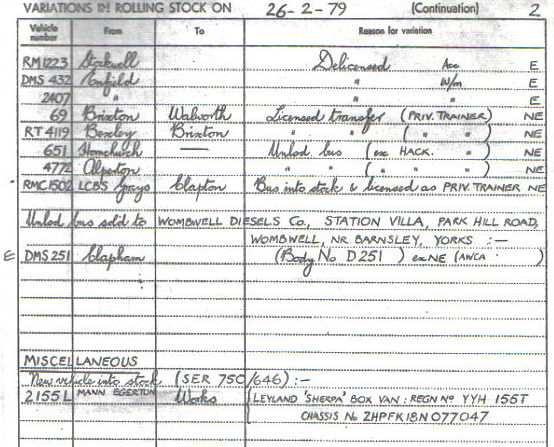 VARIATIONS IN ROLLING STOCK ON 26-2-79 (Continuation) 2
Vehicle number From To Reason for variation
RM1223 Stockwell Delicensed Acc E
DMS 432 Enfield " W/m E
2407 " " " E
69 Brixton Walworth Licensed transfer (PRIV. TRAINER) NE
RT 4119 Bexley Brixton " " ( " " ) NE
651 Hornchurch — Unlsd bus (ex HACK. " ) NE
4772 Alperton " " ( " " " ) NE
RMC1502 LCBS Grays Clapton Bus into stock & licensed as PRIV. TRAINER NE
Unlsd bus sold to WOMBWELL DIESELS Co., STATION VILLA, PARK HILL ROAD,
WOMBWELL, NR BARNSLEY, YORKS :—
E DMS 251 Clapham (Body No D251) ex NE (AWCA )
MISCELLANEOUS
New vehicle into stock (SER 75C/646) :—
2155L MANN EGERTON Works LEYLAND 'SHERPA' BOX VAN : REGN No YYH 155T
CHASSIS No ZHPFK18N077047